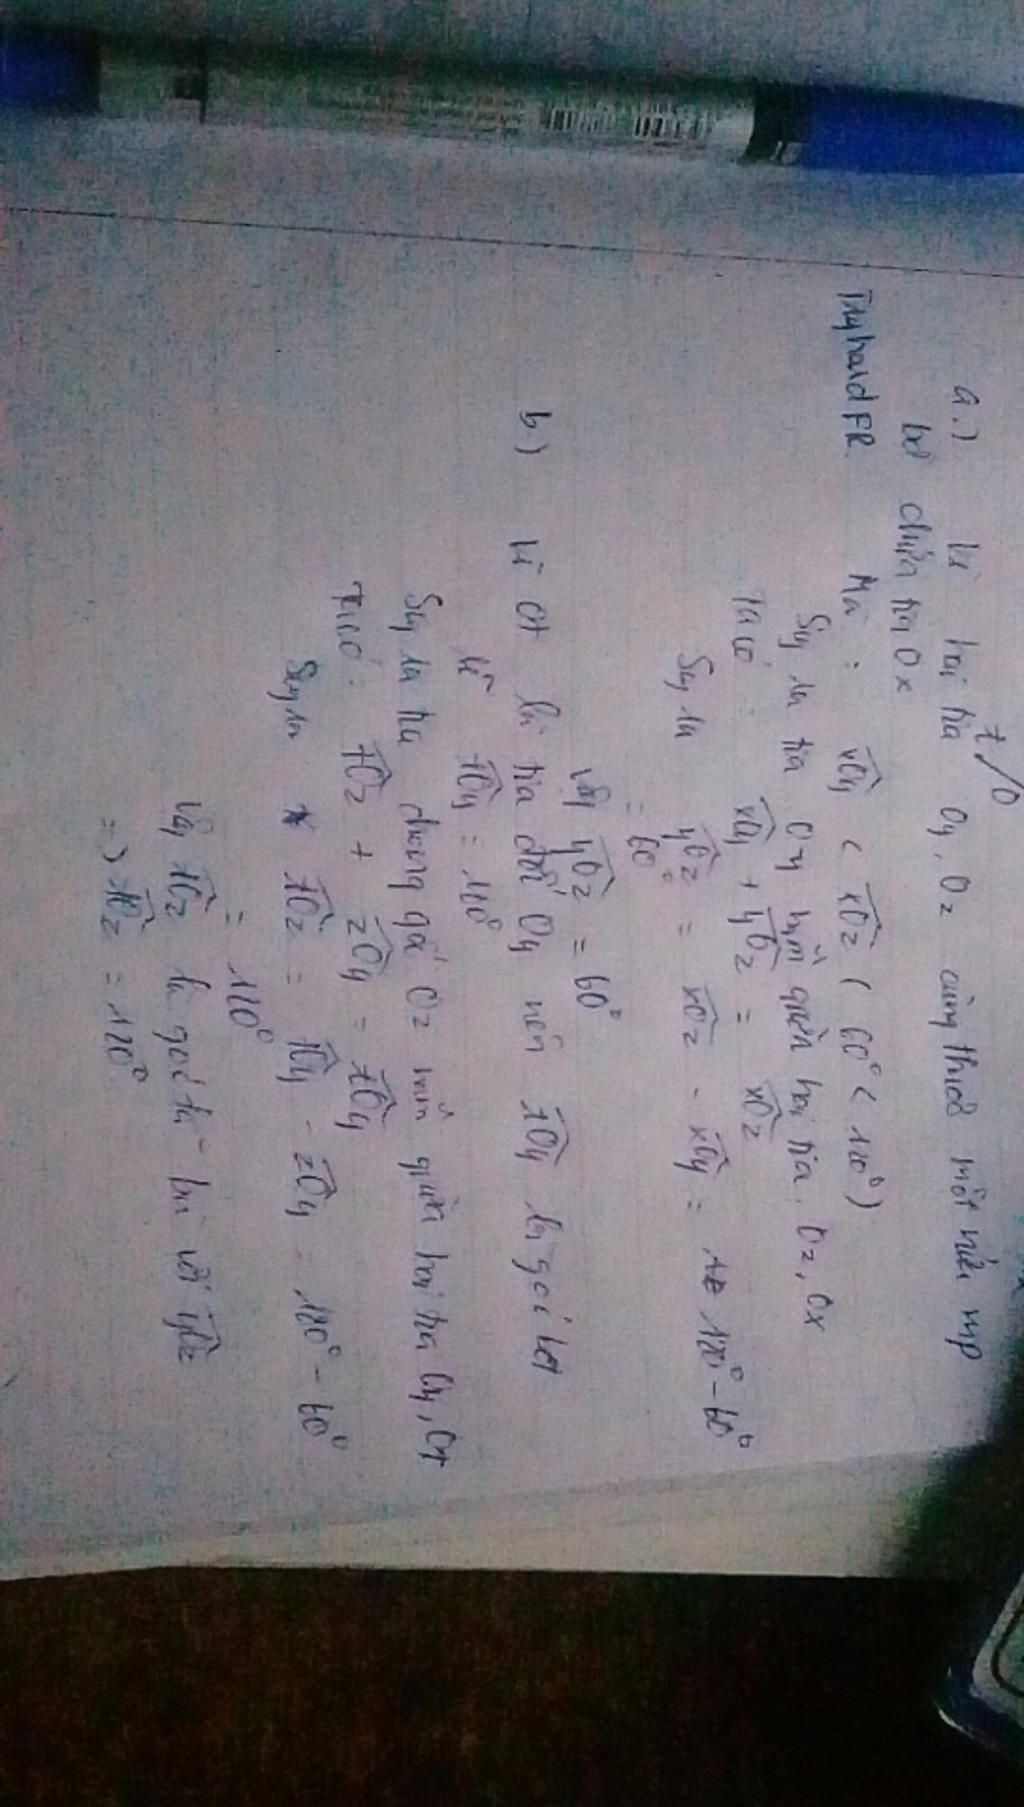 t O
a.) Vì hai tia Oy, Oz cùng thuộc một nửa mp
bờ chứa tia Ox
TryhardFR
Mà : xOy < xOz ( 60° < 120° )
Suy ra tia Oy nằm giữa hai tia Oz, Ox
Ta có : xOy + yOz = xOz
Suy ra yOz = xOz - xOy = 120° - 60°
= 60°
Vậy yOz = 60°
b.) Vì Ot là tia đối Oy nên tOy là góc bẹt
Vì tOy = 180°
Suy ra tia Oz nằm giữa hai tia Oy, Ot
Ta có : tOz + zOy = tOy
Suy ra tOz = tOy - zOy = 180° - 60°
= 120°
Vậy tOz là góc kề bù với yOz
=> tOz = 120°